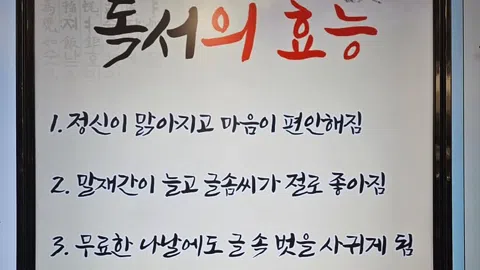 독서의 효능
1. 정신이 맑아지고 마음이 편안해짐
2. 말재간이 늘고 글솜씨가 절로 좋아짐
3. 무료한 나날에도 글 속 벗을 사귀게 됨